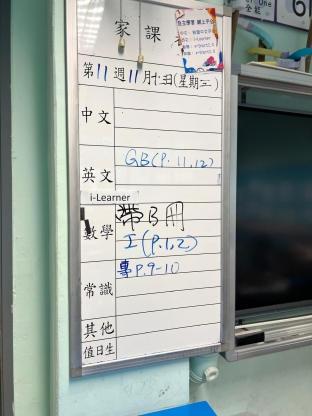 家課
第11週11月十三日(星期三)
中文
GB(P.11,12)
英文
i-Learner
帶B冊
數學
工(P.1,2)
專P.9-10
常識
其他
值日生